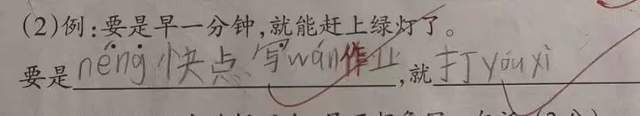 (2)例:要是早一分钟,就能赶上绿灯了。
要是néng快点写wán作业,就打yóu xì